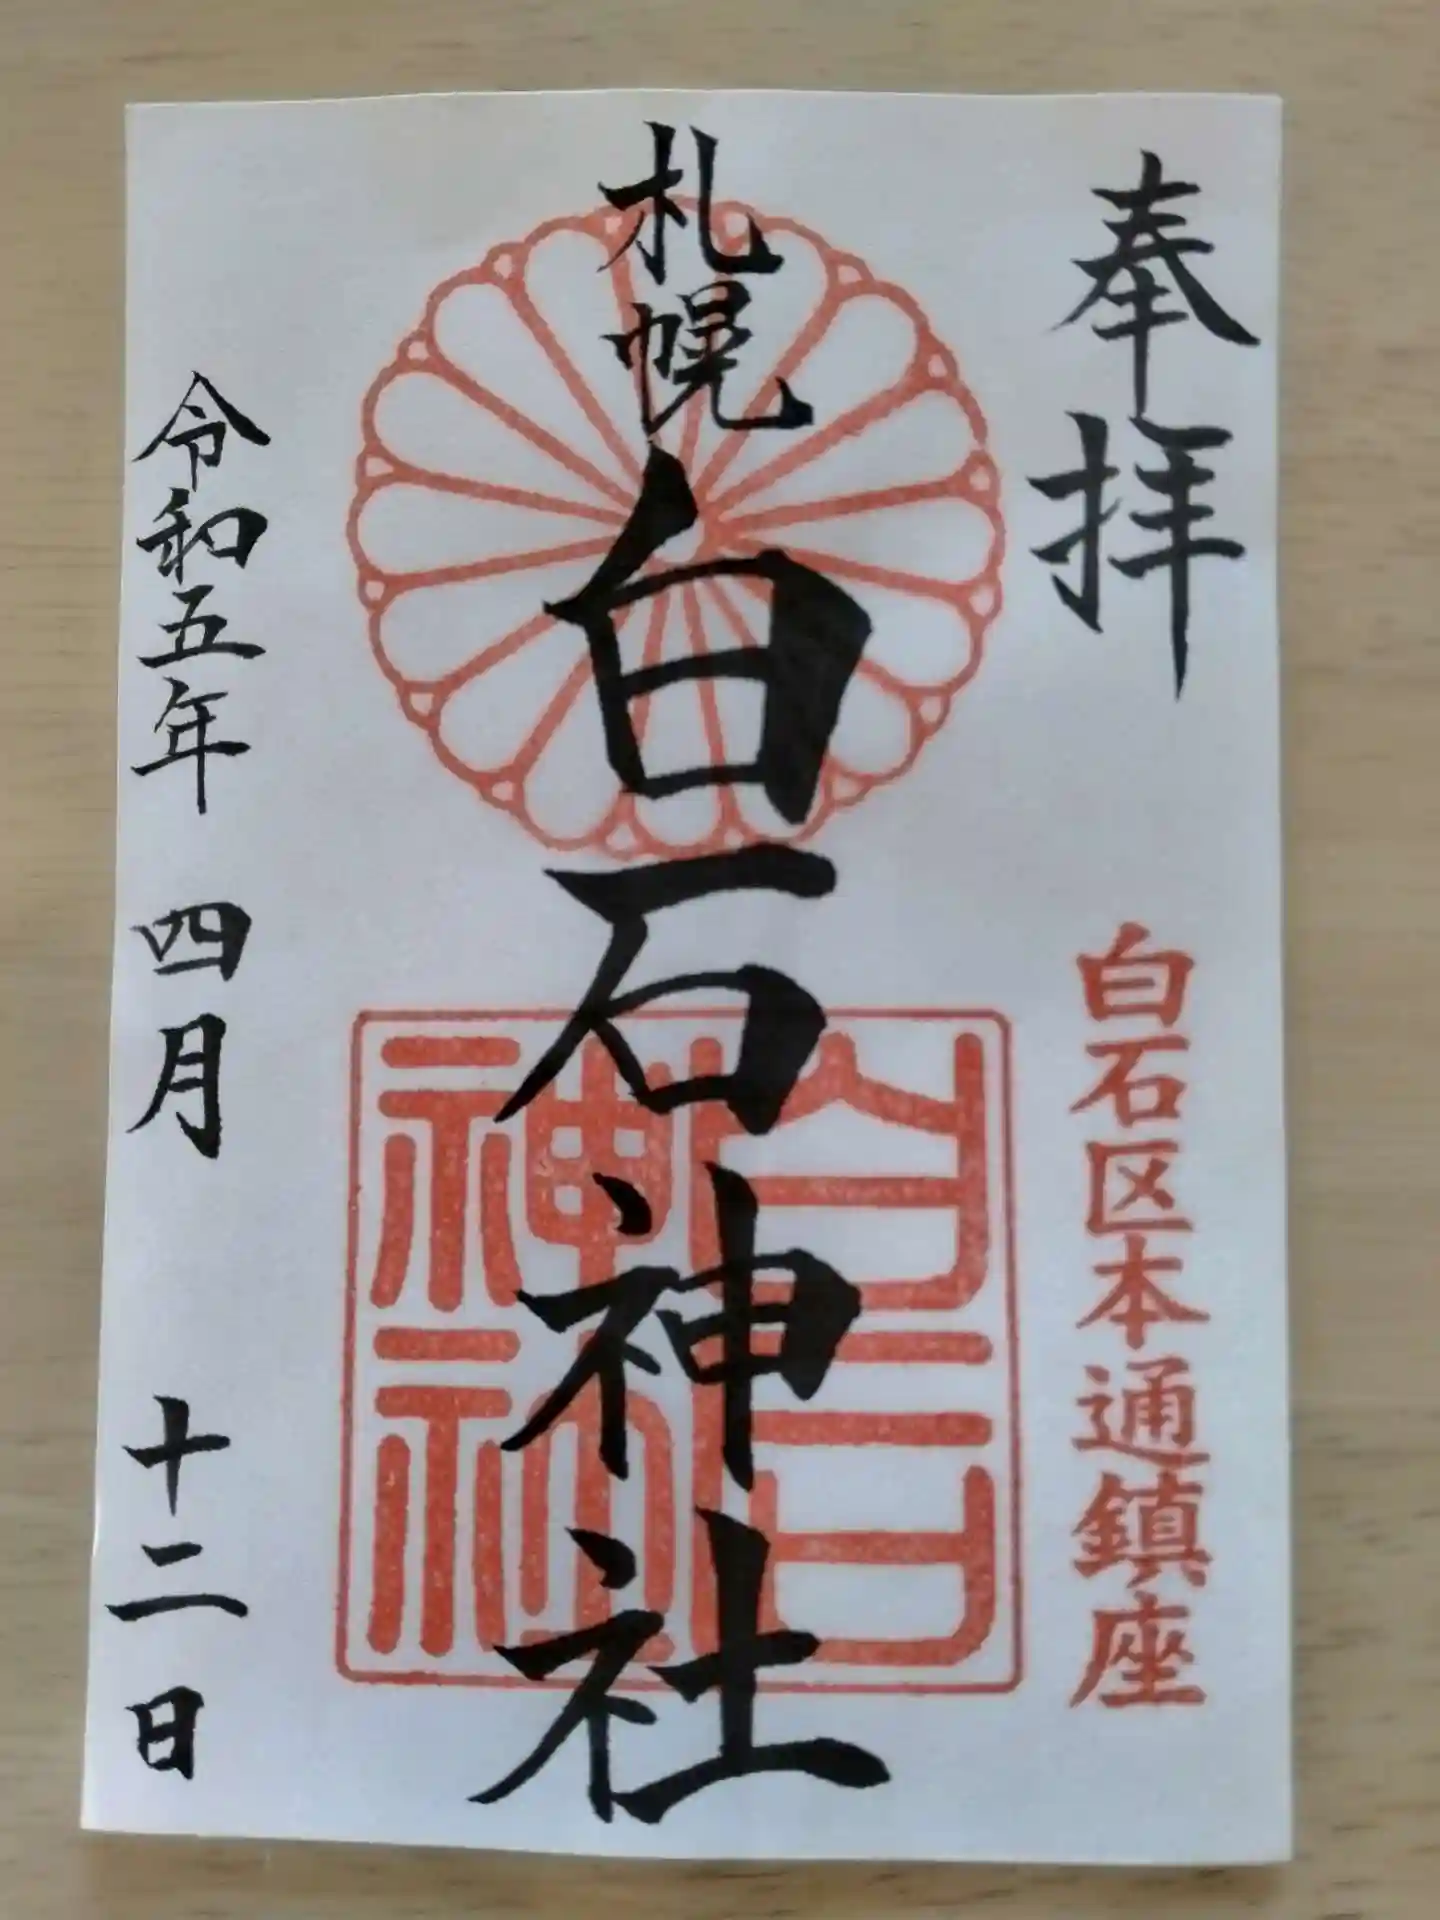 奉拝
白石区本通鎮座
札幌
白石神社
白石神社
令和五年 四月 十二日